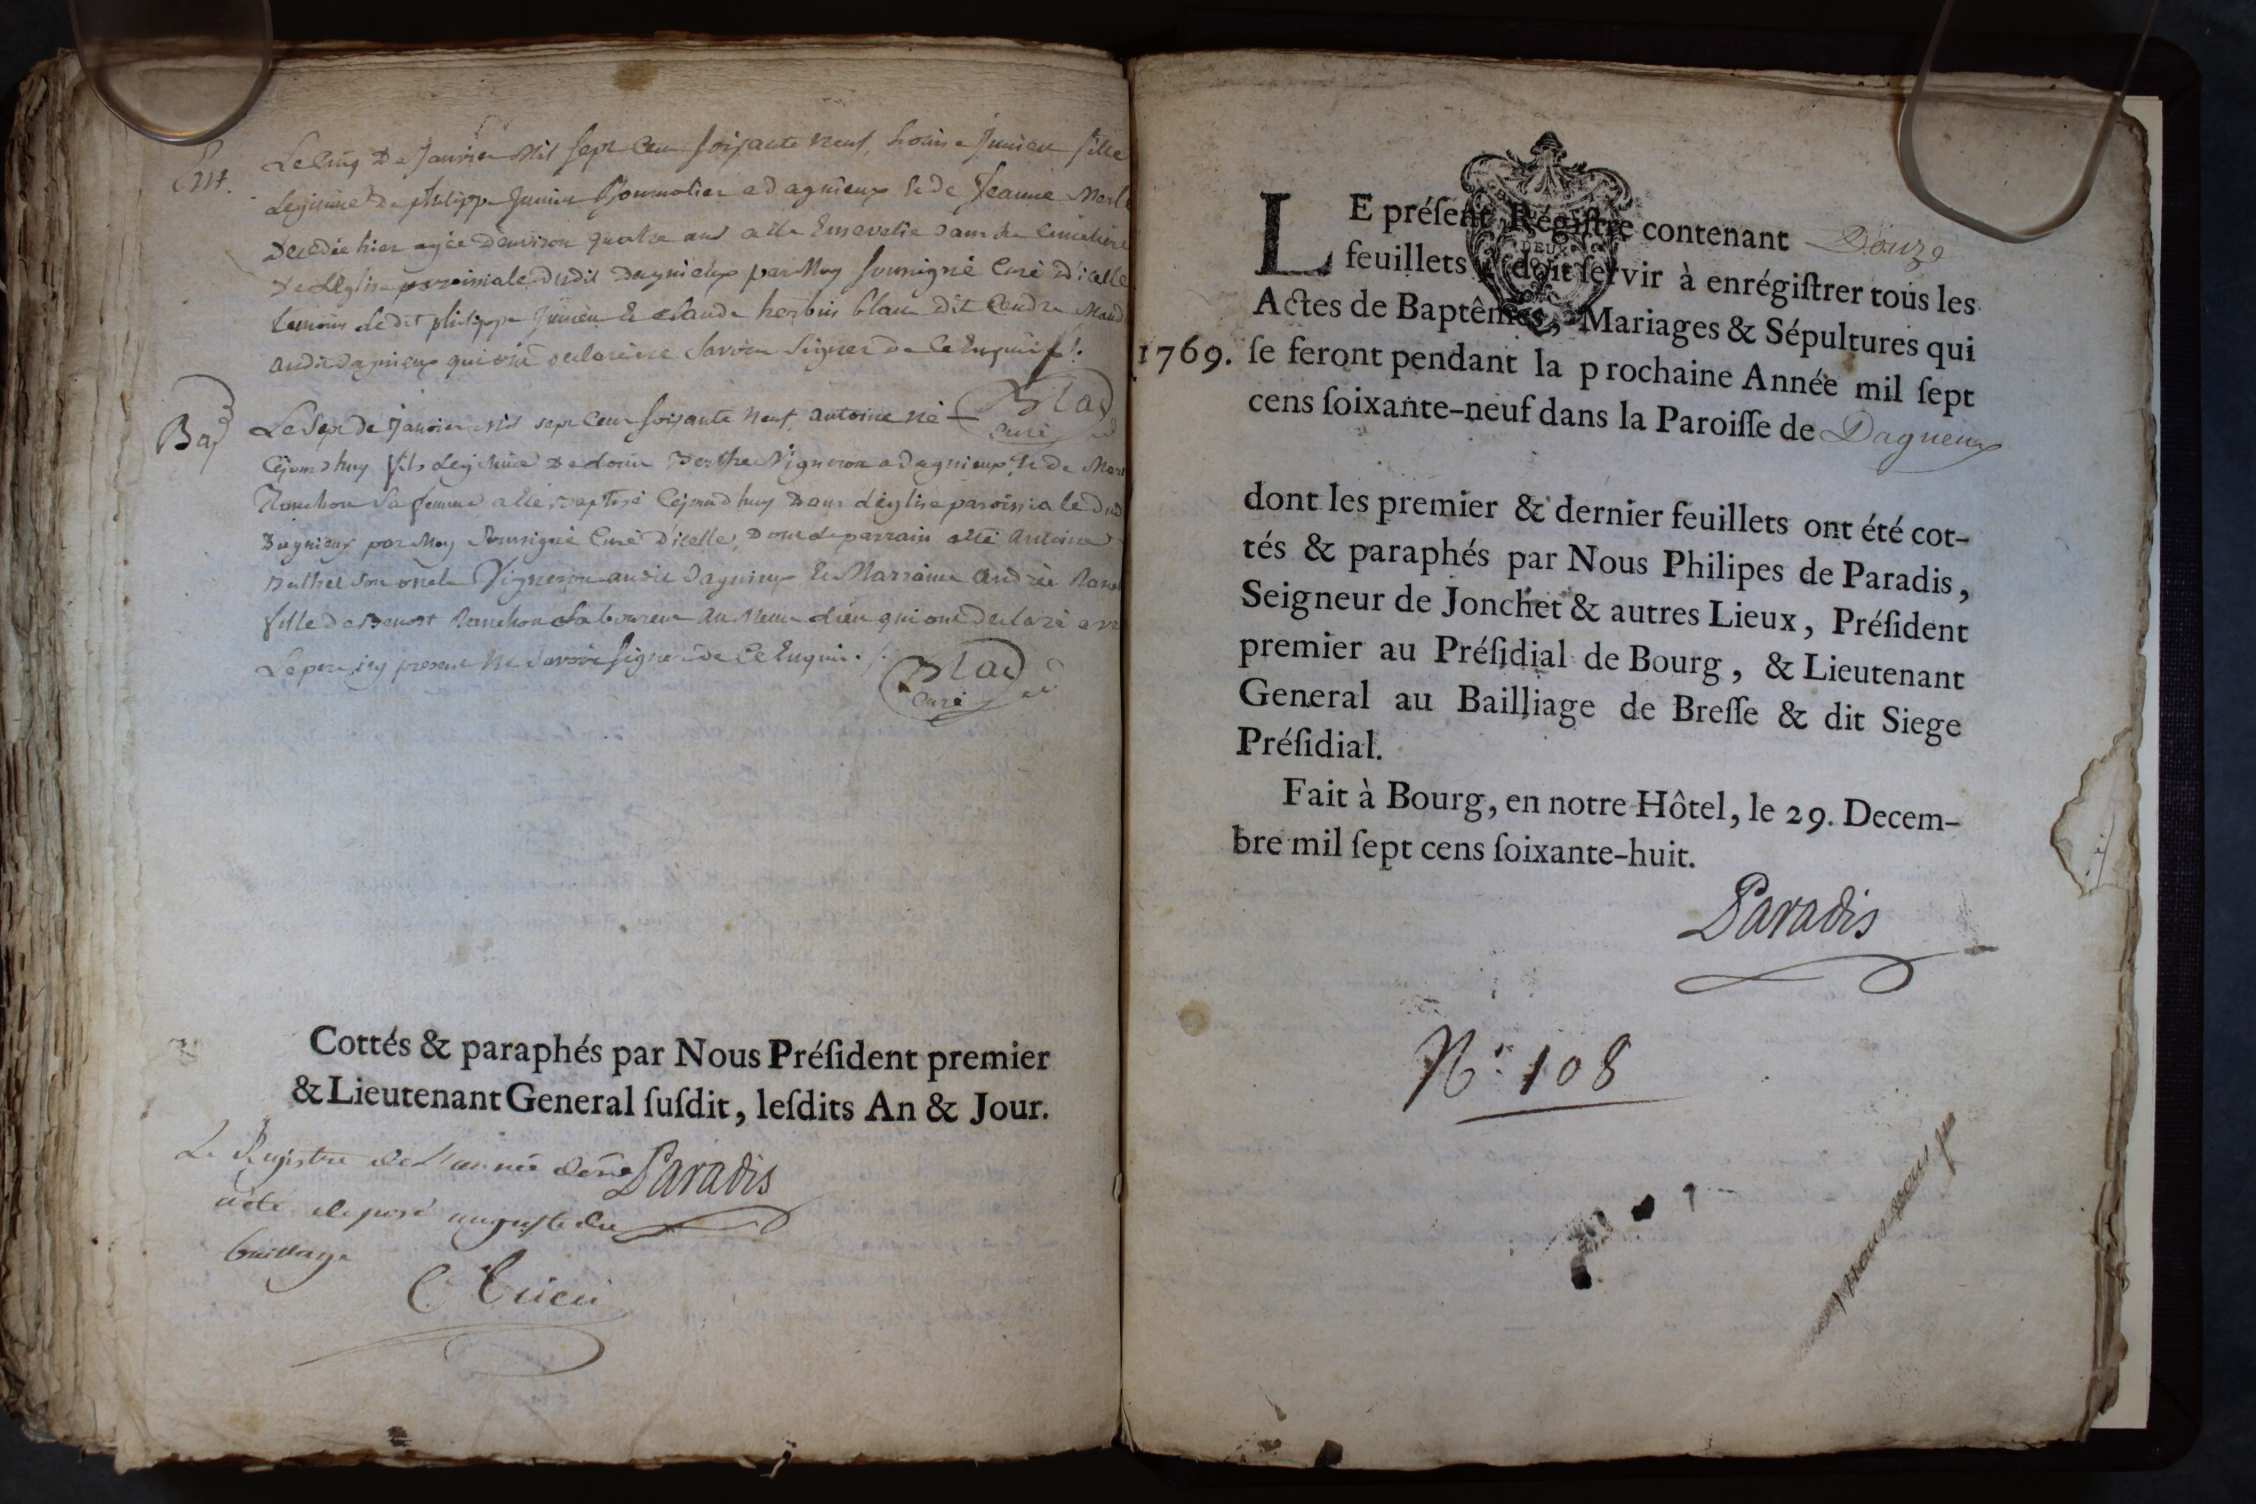 Ent.
Le cinq de Janvier mil sept cen soixante neuf, Junien fille
Legitime de philippe Junien Journalier a dagnieux & de Jeanne
decedée hier agée d'environ quatre ans a été Ensevelie dans le Cimetiere
de L'Eglise paroissiale dudit dagnieux par Moy soussigné Curé d'icelle
temoins Ledit philippe Junien & Claude blanc dit
audit dagnieux qui ont declaré ne savoir signer de Ce Enquis
Blad
curé
Bap
Le Sept de Janvier mil sept Cen soixante neuf, antoine né
Cejourdhuy fils Legitime de Vigneron a dagnieux & de
Ranchon sa femme a été Baptisé Cejourdhuy dans L'église paroissiale dud
dagnieux par Moy soussigné Curé d'icelle, dont Le parrain a été antoine
son oncle Vigneron audit dagnieux & Marraine andrée
fille de Benoit Ranchon Laboureur au Meme Lieu qui ont declaré
Le pere icy present ne savoir signer de Ce Enquis.
Blad
curé
Cottés & paraphés par Nous Préſident premier
& Lieutenant General ſuſdit, leſdits An & Jour.
Paradis
Le Registre de L'année
a été deposé au greffe du
bailliage
LE préſent Régiſtre contenant Douze
feuillets doit ſervir à enrégiſtrer tous les
Actes de Baptêmes, Mariages & Sépultures qui
1769. ſe feront pendant la prochaine Année mil ſept
cens ſoixante-neuf dans la Paroiſſe de Dagneux
dont les premier & dernier feuillets ont été cot-
tés & paraphés par Nous Philipes de Paradis,
Seigneur de Jonchet & autres Lieux, Préſident
premier au Préſidial de Bourg, & Lieutenant
General au Bailliage de Breſſe & dit Siege
Préſidial.
Fait à Bourg, en notre Hôtel, le 29. Decem-
bre mil ſept cens ſoixante-huit.
Paradis
N° 108